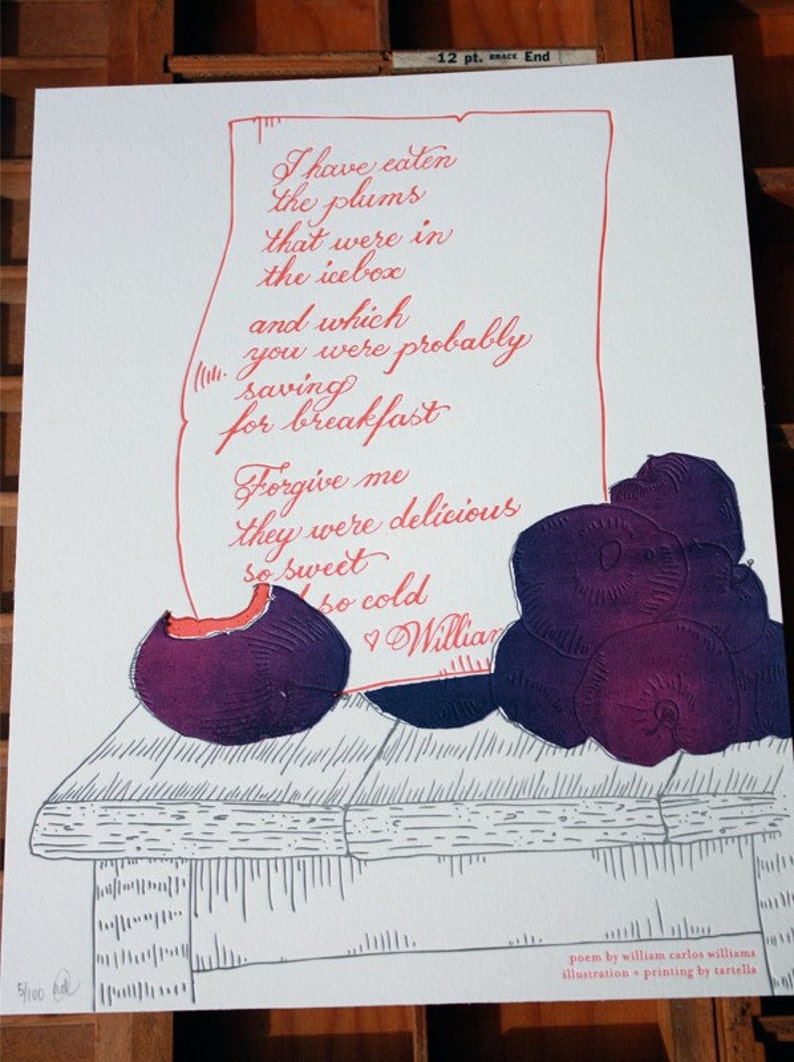 12 pt. BRACE End
I have eaten
the plums
that were in
the icebox
and which
you were probably
saving
for breakfast
Forgive me
they were delicious
so sweet
so cold
♡ William
poem by william carlos williams
illustration + printing by tartella
5/100